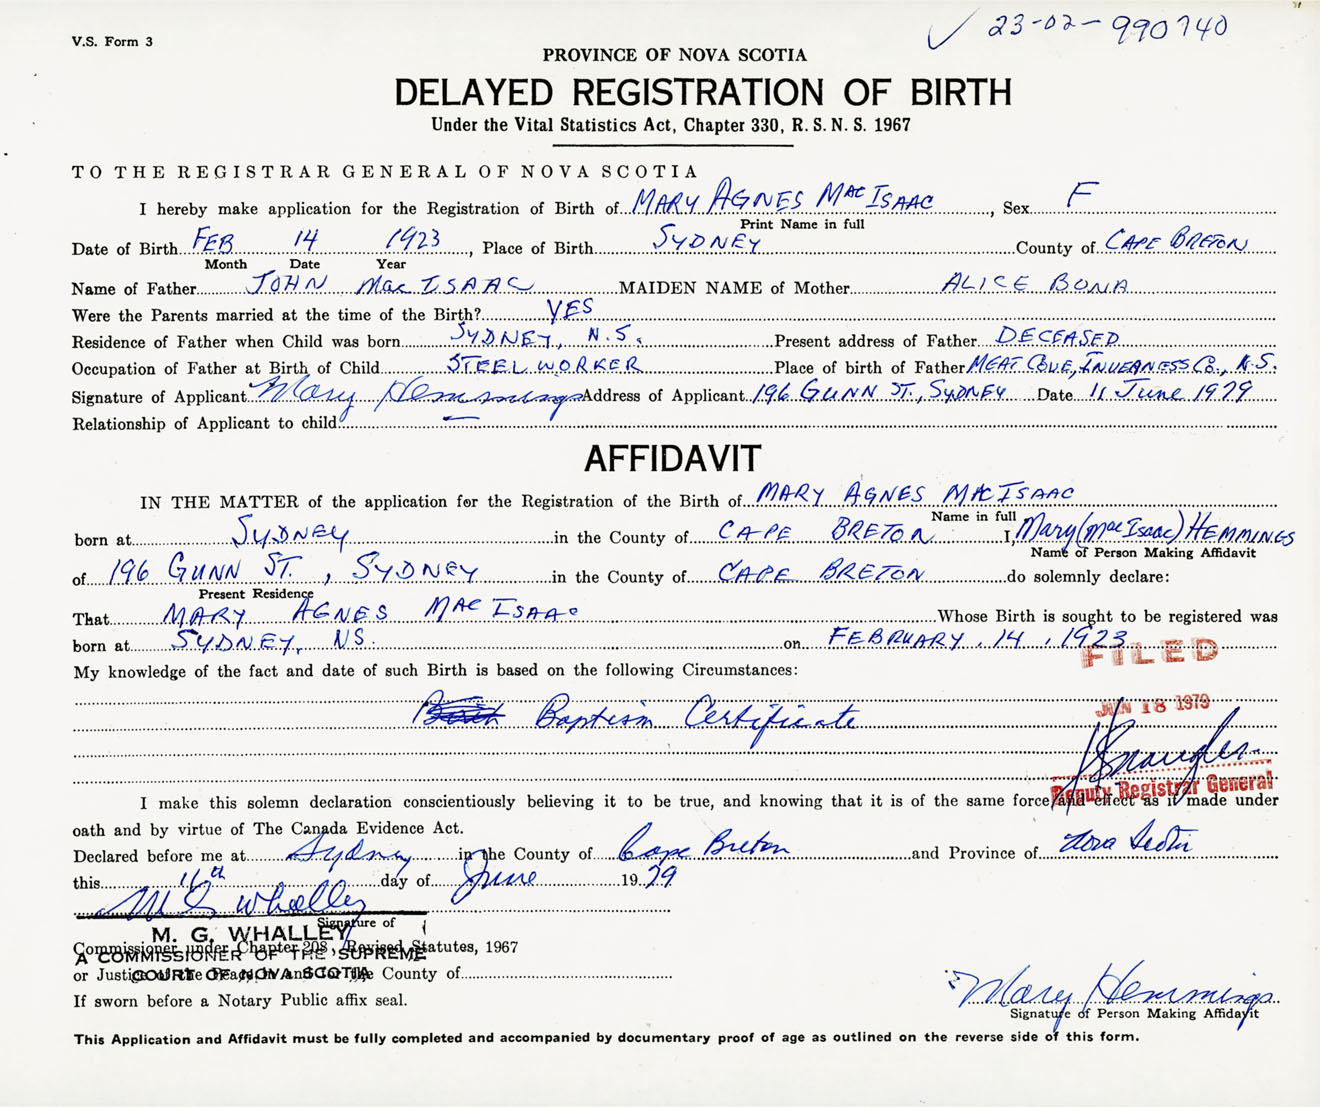 V.S. Form 3
✓ 23-02-990740
PROVINCE OF NOVA SCOTIA
DELAYED REGISTRATION OF BIRTH
Under the Vital Statistics Act, Chapter 330, R. S. N. S. 1967
TO THE REGISTRAR GENERAL OF NOVA SCOTIA
I hereby make application for the Registration of Birth of MARY AGNES MacISAAC, Sex F
Print Name in full
Date of Birth FEB 14 1923, Place of Birth SYDNEY County of CAPE BRETON
Month Date Year
Name of Father JOHN MacISAAC MAIDEN NAME of Mother ALICE BONA
Were the Parents married at the time of the Birth? YES
Residence of Father when Child was born SYDNEY, N.S. Present address of Father DECEASED
Occupation of Father at Birth of Child STEELWORKER Place of birth of Father MEAT COVE, INVERNESS CO., N.S.
Signature of Applicant Mary Hemmings Address of Applicant 196 GUNN ST., SYDNEY Date 11 June 1979
Relationship of Applicant to child —
AFFIDAVIT
IN THE MATTER of the application for the Registration of the Birth of MARY AGNES MACISAAC
Name in full
born at SYDNEY in the County of CAPE BRETON I, Mary (MacIsaac) HEMMINGS
Name of Person Making Affidavit
of 196 GUNN ST., SYDNEY in the County of CAPE BRETON do solemnly declare:
Present Residence
That MARY AGNES MACISAAC Whose Birth is sought to be registered was
born at SYDNEY, NS. on FEBRUARY, 14, 1923
FILED
My knowledge of the fact and date of such Birth is based on the following Circumstances:
Baptism Certificate
JUN 18 1979
Deputy Registrar General
I make this solemn declaration conscientiously believing it to be true, and knowing that it is of the same force and effect as if made under
oath and by virtue of The Canada Evidence Act.
Declared before me at Sydney in the County of Cape Breton and Province of Nova Scotia
this 11th day of June 1979
M G Whalley
Signature of
M. G. WHALLEY
Commissioner under Chapter 208, Revised Statutes, 1967
A COMMISSIONER OF THE SUPREME
or Justice of the Peace in and for the County of
COURT OF NOVA SCOTIA
If sworn before a Notary Public affix seal.
Mary Hemmings
Signature of Person Making Affidavit
This Application and Affidavit must be fully completed and accompanied by documentary proof of age as outlined on the reverse side of this form.